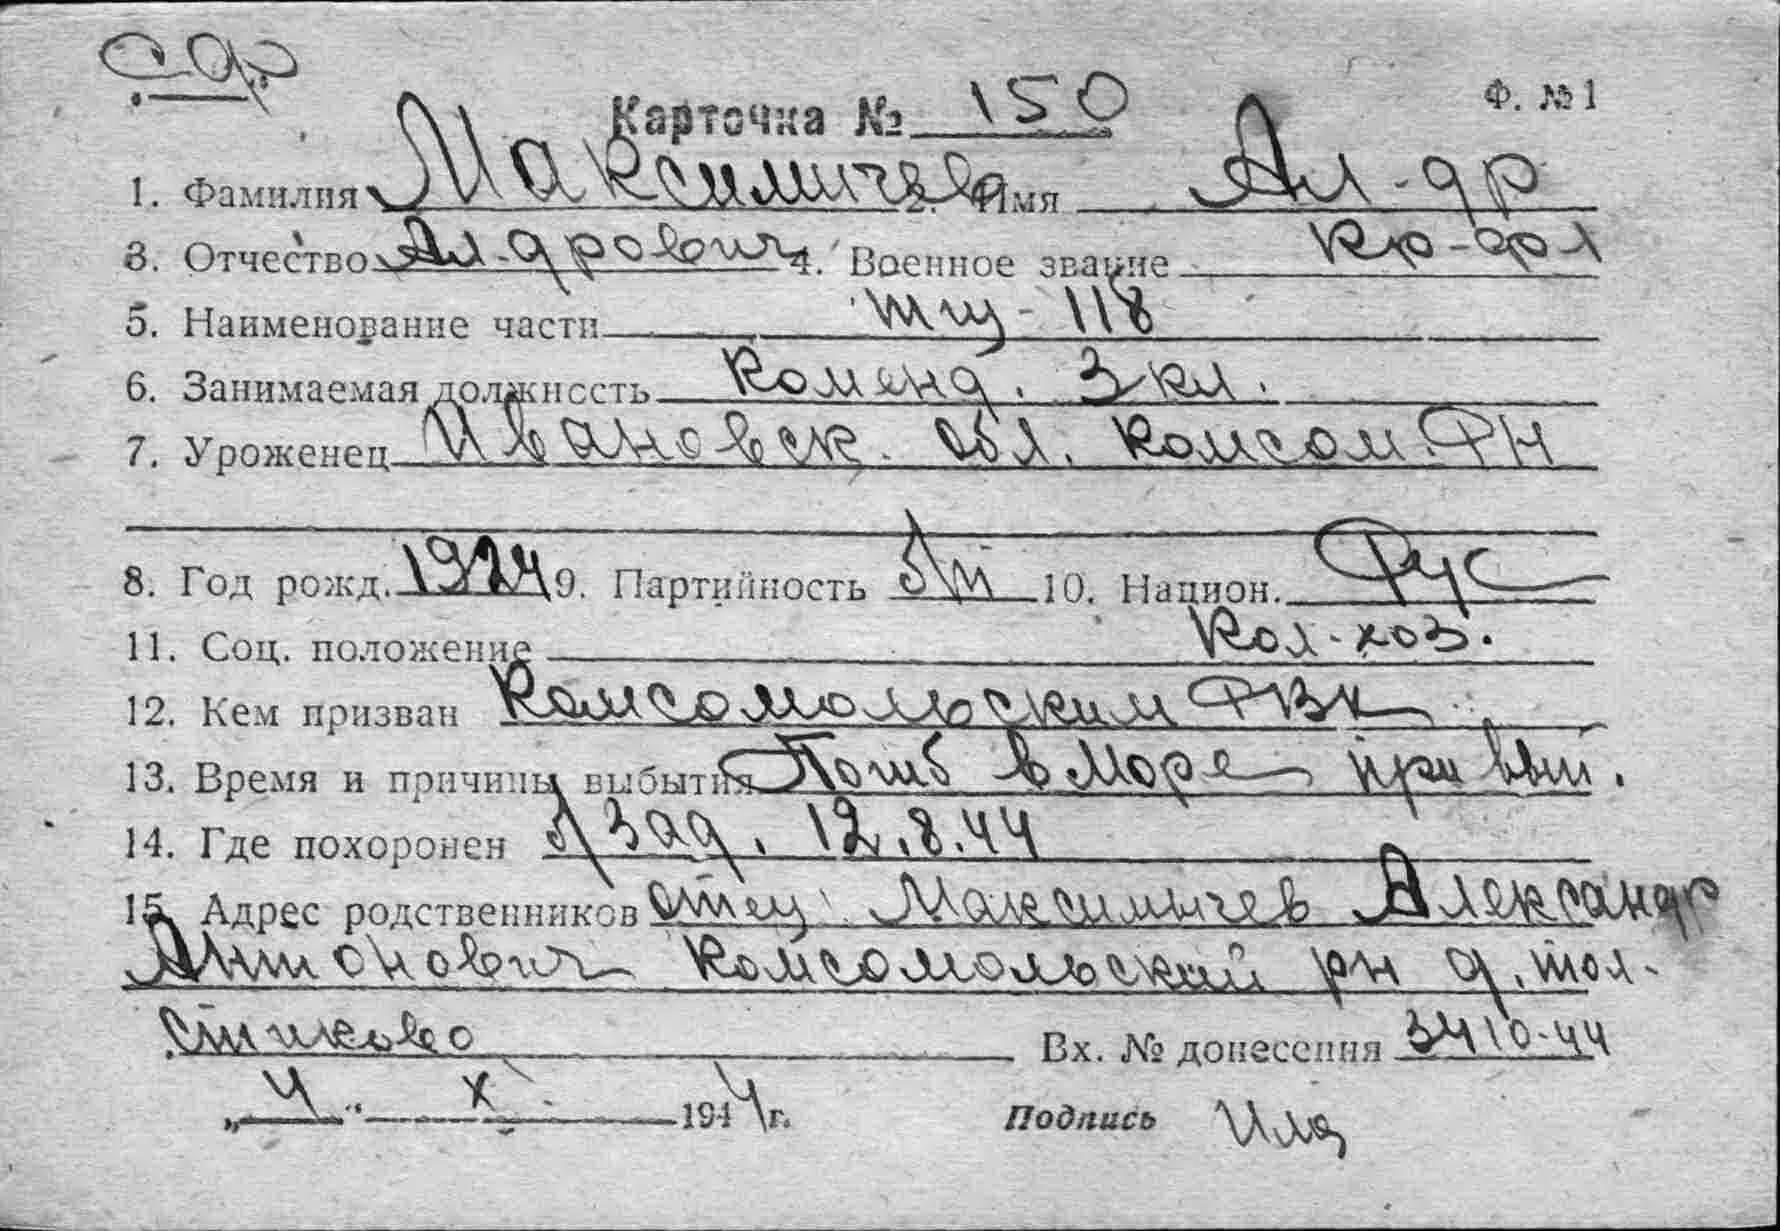 СФ
Карточка № 150 Ф. № 1
1. Фамилия Максимичев 2. Имя Ал-др
3. Отчество Ал-дрович 4. Военное звание Кр-фл
5. Наименование части тщ-118
6. Занимаемая должность Коменд. 3 кл.
7. Уроженец Ивановск. обл. Комсом. РН
8. Год рожд. 1924 9. Партийность б/п 10. Национ. Рус
11. Соц. положение Кол-хоз.
12. Кем призван Комсомольским РВК
13. Время и причины выбытия Погиб в море при вып.
14. Где похоронен б/зад. 12.8.44
15. Адрес родственников отец Максимычев Александр
Антонович Комсомольский рн д. тол-
стиково Вх. № донесения 3410-44
„4“ X 1944г. Подпись